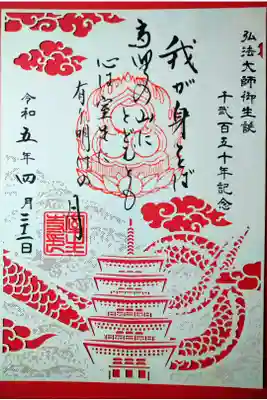 弘法大師御生誕
千弐百五十年記念
我が身をば
高野の山に
とどむとも
心は室生に
有り明けの月
令和五年四月